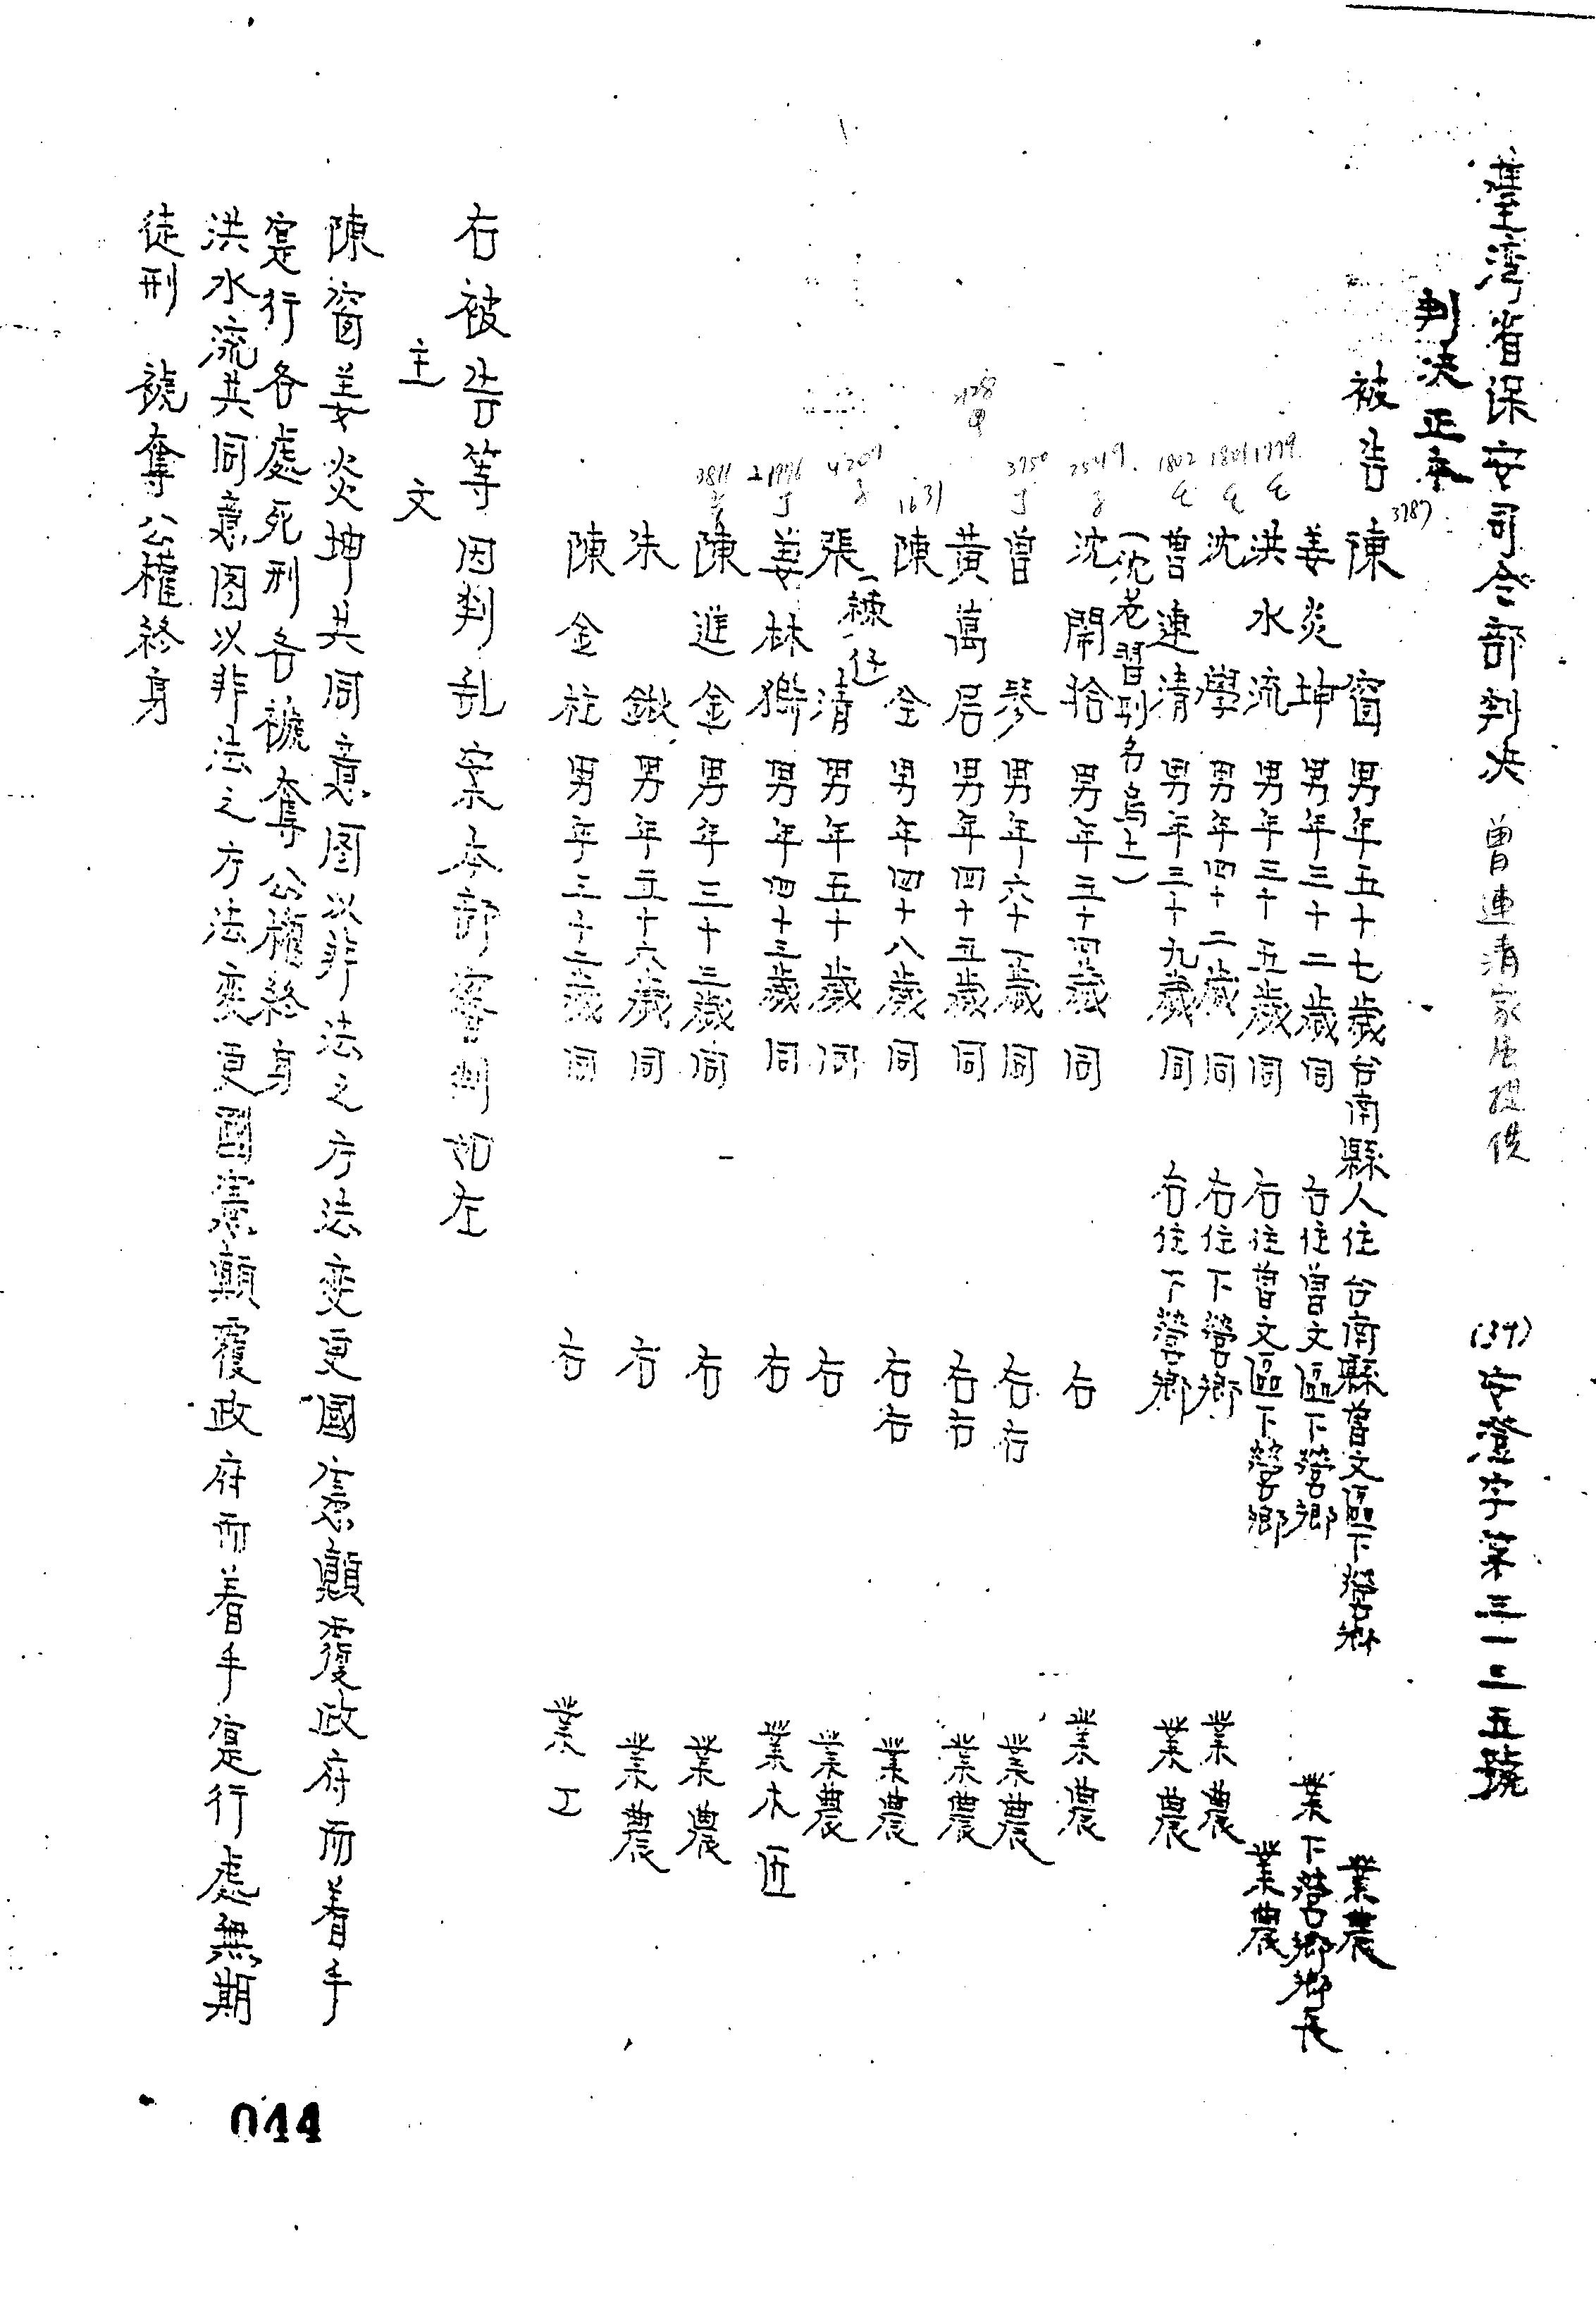 臺湾省保安司令部判决 曾連清家屬提供 (39)安澄字第三一二五號
判决正本
被告 陳窗 男年五十七歲台南縣人住台南縣曾文區下營鄉 業農
3787
姜炎坤 男年三十二歲同 右住曾文區下營鄉 業下營鄉鄉長
1779 洪水流 男年三十五歲同 右住曾文區下營鄉 業農
1801 沈學 男年四十二歲同 右住下營鄉 業農
1802 曾連清 男年三十九歲同 右住下營鄉 業農
(沈老習列名烏土)
2549 沈開拾 男年三十四歲同 右 業農
3750 曾琴 男年六十一歲同 右右 業農
黃萬居 男年四十五歲同 右右 業農
1631 陳全 男年四十八歲同 右右 業農
4207 張清 男年五十歲同 右 業農
1776 姜林獅 男年四十三歲同 右 業木匠
3811 陳進金 男年三十三歲同 右 業農
朱鍬 男年五十六歲同 右 業農
陳金柱 男年三十二歲同 右 業工
右被告等因判乱案本部審判如左
主文
陳窗姜炎坤共同意图以非法之方法变更國憲顛覆政府而着手
寔行各處死刑各褫奪公權終身
洪水流共同意图以非法之方法变更國憲顛覆政府而着手寔行處無期
徒刑 褫奪公權終身
044